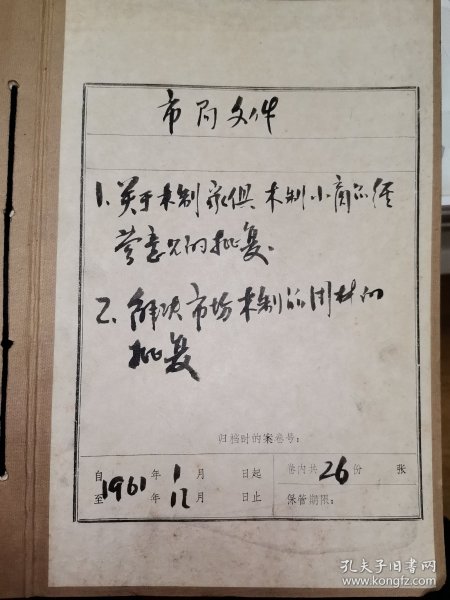 市局文件
1.关于木制家俱 木制小商品经
营意见的批复.
2.解决市场木制品用材的
批复
归档时的案卷号:
自1961年1月 日起
至 年12月 日止
卷内共26份 张
保管期限:
孔夫子旧书网
www.kongfz.com